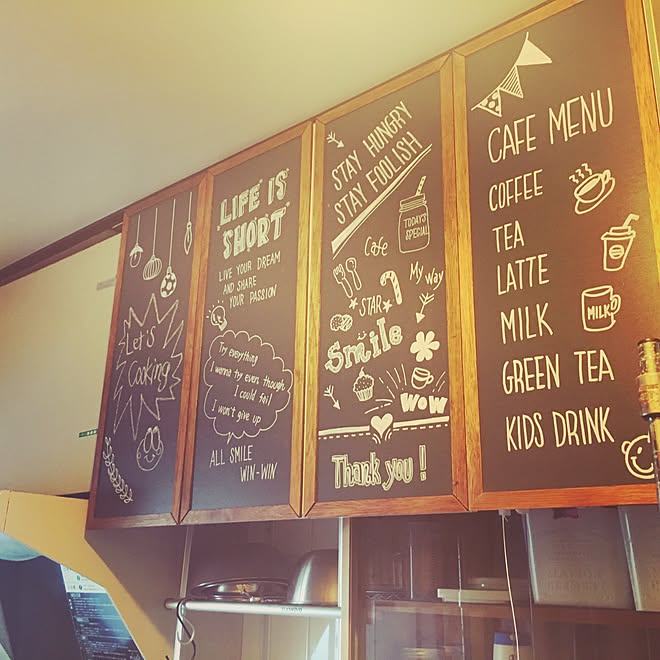 Let's
Cooking
"LIFE IS
SHORT"
LIVE YOUR DREAM
AND SHARE
YOUR PASSION
Try everything
I wanna try even though
I could fail
I won't give up
ALL SMILE
WIN-WIN
STAY HUNGRY
STAY FOOLISH
TODAY'S
SPECIAL
Cafe
My way
STAR
Smile
WOW
Thank you!
CAFE MENU
COFFEE
TEA
LATTE
MILK
MILK
GREEN TEA
KIDS DRINK